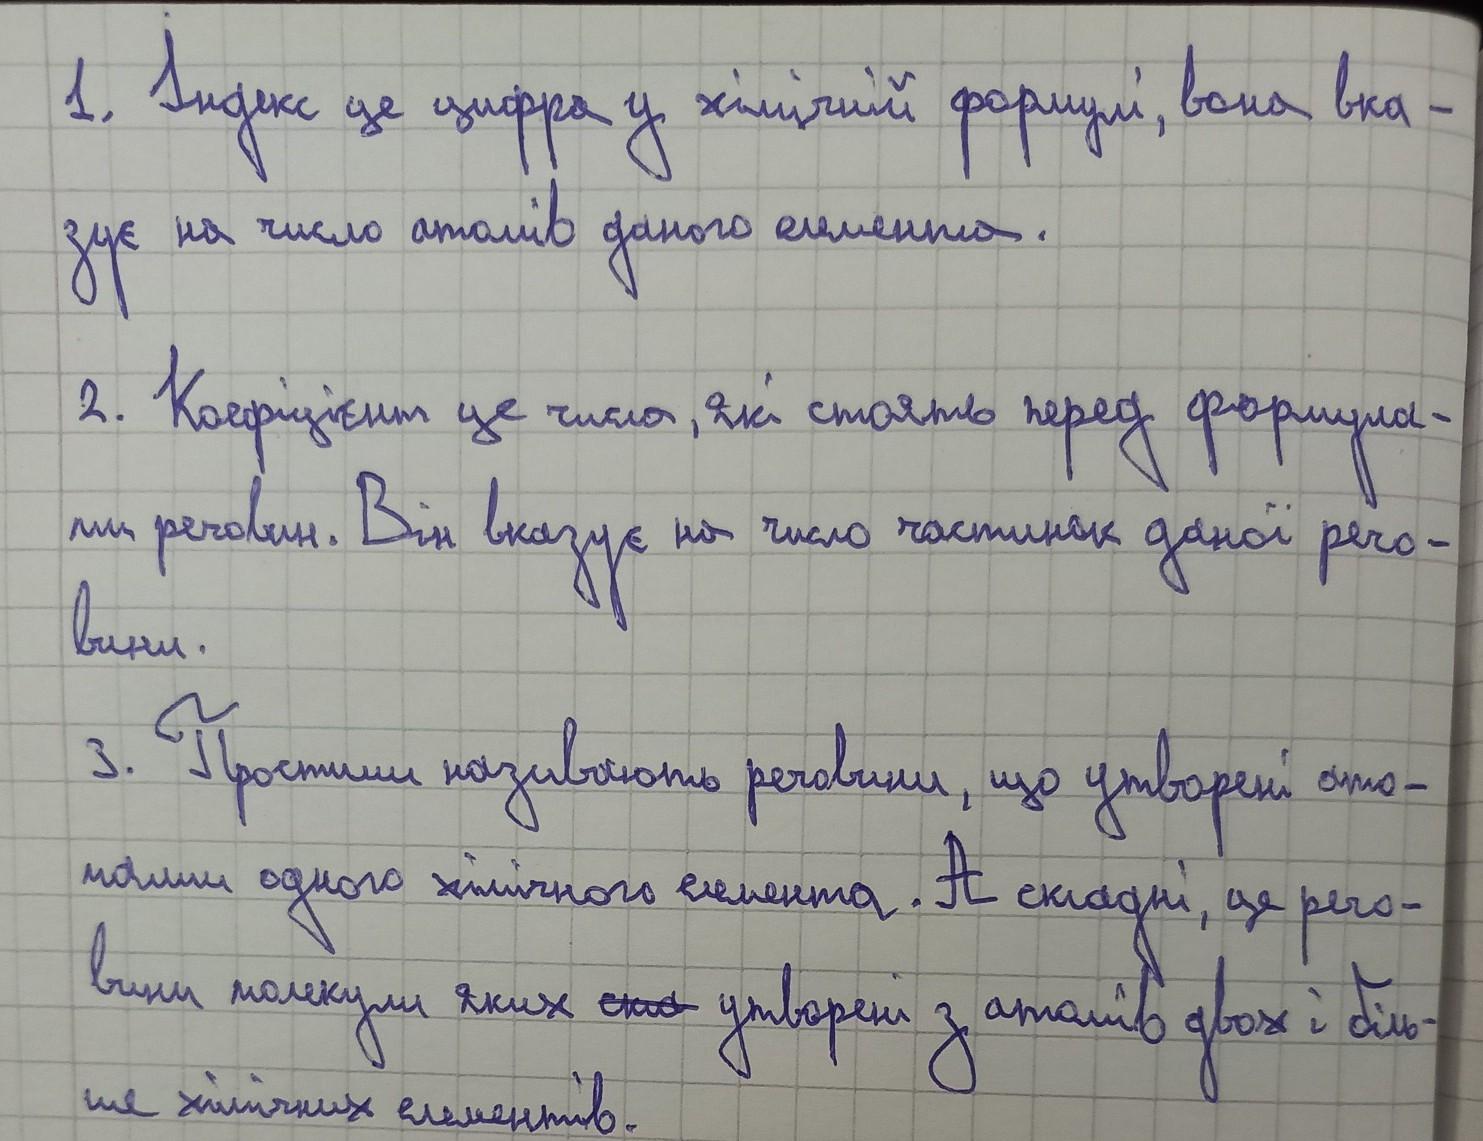 1. Індекс це цифра у хімічній формулі, вона вка-
зує на число атомів даного елемента.
2. Коефіцієнт це числа, які стоять перед формула-
ми речовин. Він вказує на число частинок даної речо-
вини.
3. Простими називають речовини, що утворені ато-
мами одного хімічного елемента. А складні, це речо-
вини молекули яких утворені з атомів двох і біль-
ше хімічних елементів.